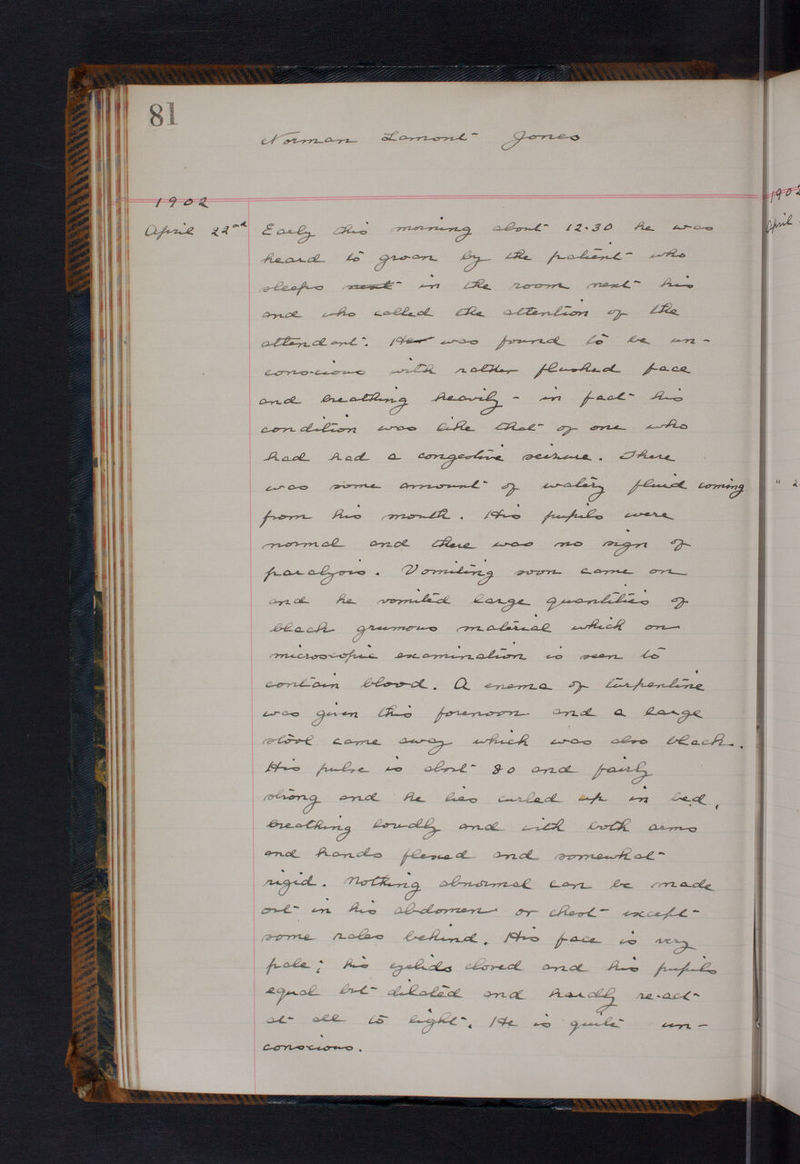 81
Norman Lamont Jones
1902
April 22nd Early this morning about 12.30 he was
heard to groan by the patient who
sleeps next in the room next his
and who called the attention of the
attendant. He was found to be un-
conscious with rather flushed face
and breathing heavily - in fact his
condition was like that of one who
had had a congestive seizure. There
was some amount of watery fluid coming
from his mouth. His pupils were
normal and there was no sign of
paralysis. Vomiting soon came on
and he vomited large quantities of
black grumous material which on
microscopic examination is seen to
contain blood. A enema of turpentine
was given this forenoon and a large
stool came away which was also black.
His pulse is about 80 and fairly
strong and he lies curled up in bed,
breathing loudly and with both arms
and hands flexed and somewhat
rigid. Nothing abnormal can be made
out in his abdomen or chest except
some rales behind. His face is very
pale; his eyelids closed and his pupils
equal but dilated and hardly re-act
at all to light. He is quite un-
conscious.
1902
April
" 2